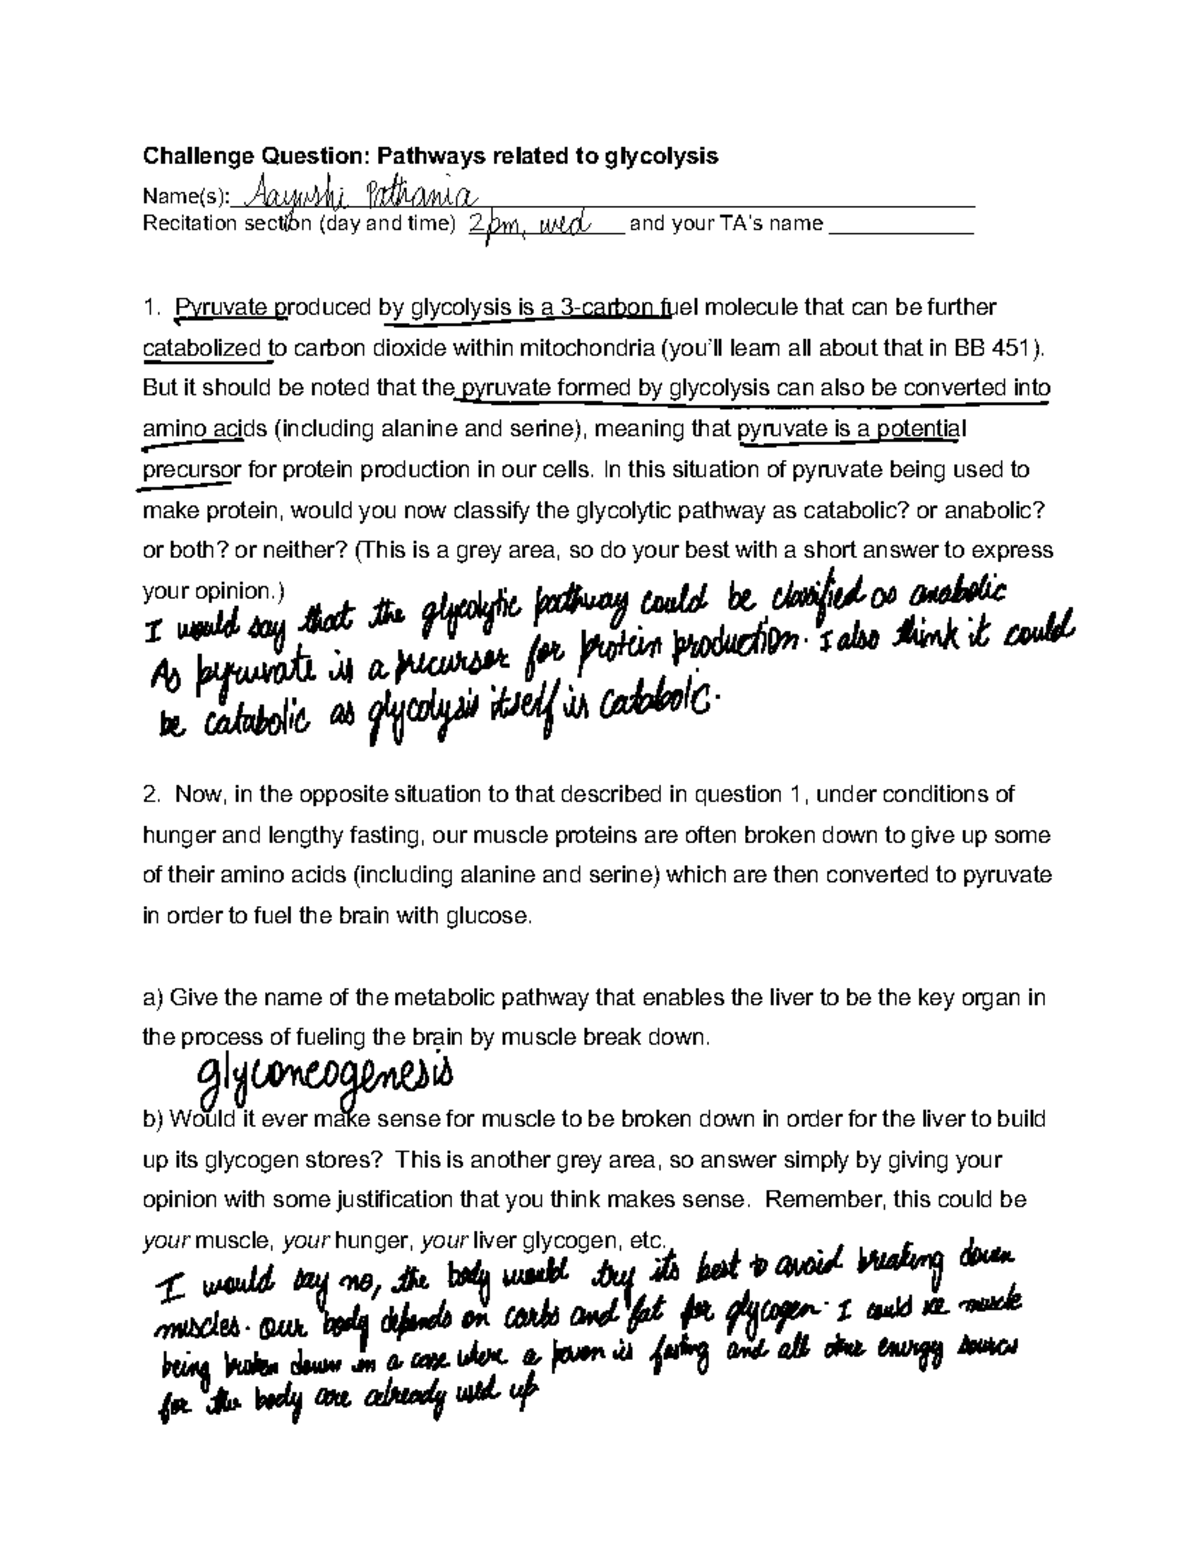 Challenge Question: Pathways related to glycolysis
Name(s): Aayushi Pathania
Recitation section (day and time) 2pm, wed and your TA's name
1. Pyruvate produced by glycolysis is a 3-carbon fuel molecule that can be further
catabolized to carbon dioxide within mitochondria (you'll learn all about that in BB 451).
But it should be noted that the pyruvate formed by glycolysis can also be converted into
amino acids (including alanine and serine), meaning that pyruvate is a potential
precursor for protein production in our cells. In this situation of pyruvate being used to
make protein, would you now classify the glycolytic pathway as catabolic? or anabolic?
or both? or neither? (This is a grey area, so do your best with a short answer to express
your opinion.)
I would say that the glycolytic pathway could be classified as anabolic
As pyruvate is a precursor for protein production. I also think it could
be catabolic as glycolysis itself is catabolic.
2. Now, in the opposite situation to that described in question 1, under conditions of
hunger and lengthy fasting, our muscle proteins are often broken down to give up some
of their amino acids (including alanine and serine) which are then converted to pyruvate
in order to fuel the brain with glucose.
a) Give the name of the metabolic pathway that enables the liver to be the key organ in
the process of fueling the brain by muscle break down.
glyconeogenesis
b) Would it ever make sense for muscle to be broken down in order for the liver to build
up its glycogen stores? This is another grey area, so answer simply by giving your
opinion with some justification that you think makes sense. Remember, this could be
your muscle, your hunger, your liver glycogen, etc.
I would say no, the body would try its best to avoid breaking down
muscles. Our body depends on carbs and fat for glycogen. I could see muscle
being broken down in a case where a person is fasting and all other energy sources
for the body are already used up